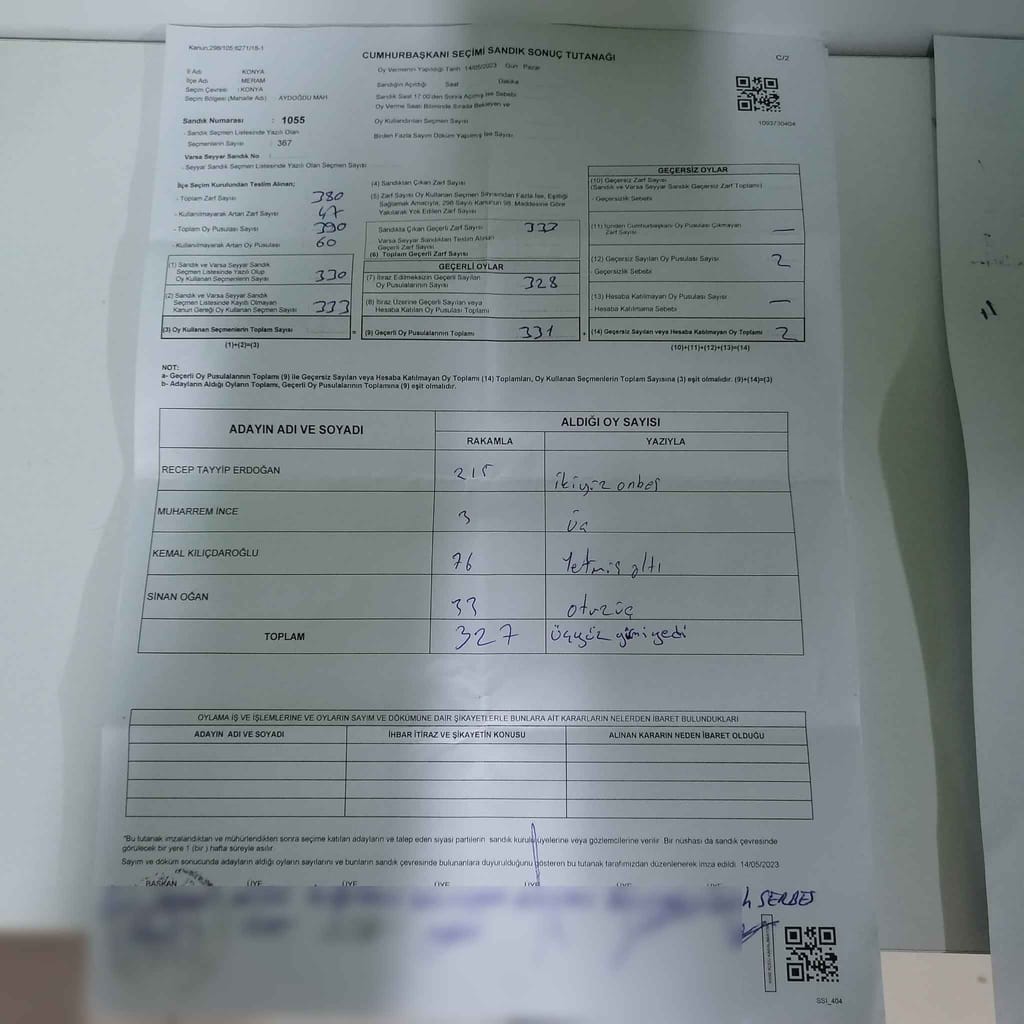 Kanun:298/105 6271/18-1
CUMHURBAŞKANI SEÇİMİ SANDIK SONUÇ TUTANAĞI
C/2
İl Adı KONYA
İlçe Adı MERAM
Seçim Çevresi : KONYA
Seçim Bölgesi (Mahalle Adı) : AYDOĞDU MAH
Oy Vermenin Yapıldığı Tarih 14/05/2023 Gün Pazar
Sandığın Açıldığı Saat Dakika
Sandık Saat 17:00'den Sonra Açılmış İse Sebebi
Oy Verme Saati Bitiminde Sırada Bekleyen ve
Oy Kullandırılan Seçmen Sayısı
Birden Fazla Sayım Döküm Yapılmış İse Sayısı
1093730404
Sandık Numarası : 1055
- Sandık Seçmen Listesinde Yazılı Olan
Seçmenlerin Sayısı : 367
Varsa Seyyar Sandık No :
- Seyyar Sandık Seçmen Listesinde Yazılı Olan Seçmen Sayısı
İlçe Seçim Kurulundan Teslim Alınan;
- Toplam Zarf Sayısı 380
- Kullanılmayarak Artan Zarf Sayısı 47
- Toplam Oy Pusulası Sayısı 390
- Kullanılmayarak Artan Oy Pusulası 60
(1) Sandık ve Varsa Seyyar Sandık
Seçmen Listesinde Yazılı Olup
Oy Kullanan Seçmenlerin Sayısı 330
(2) Sandık ve Varsa Seyyar Sandık
Seçmen Listesinde Kayıtlı Olmayan
Kanun Gereği Oy Kullanan Seçmen Sayısı 333
(3) Oy Kullanan Seçmenlerin Toplam Sayısı =
(1)+(2)=(3)
(4) Sandıktan Çıkan Zarf Sayısı
(5) Zarf Sayısı Oy Kullanan Seçmen Sayısından Fazla İse, Eşitliği
Sağlamak Amacıyla, 298 Sayılı Kanunun 98. Maddesine Göre
Yakılarak Yok Edilen Zarf Sayısı
Sandıkta Çıkan Geçerli Zarf Sayısı 333
Varsa Seyyar Sandıktan Teslim Alınan
Geçerli Zarf Sayısı
(6) Toplam Geçerli Zarf Sayısı
GEÇERLİ OYLAR
(7) İtiraz Edilmeksizin Geçerli Sayılan
Oy Pusulalarının Sayısı 328
(8) İtiraz Üzerine Geçerli Sayılan veya
Hesaba Katılan Oy Pusulası Toplamı
(9) Geçerli Oy Pusulalarının Toplamı 331 +
GEÇERSİZ OYLAR
(10) Geçersiz Zarf Sayısı
(Sandık ve Varsa Seyyar Sandık Geçersiz Zarf Toplamı)
- Geçersizlik Sebebi
(11) İçinden Cumhurbaşkanı Oy Pusulası Çıkmayan
Zarf Sayısı —
(12) Geçersiz Sayılan Oy Pusulası Sayısı 2
- Geçersizlik Sebebi
(13) Hesaba Katılmayan Oy Pusulası Sayısı —
- Hesaba Katılmama Sebebi
(14) Geçersiz Sayılan veya Hesaba Katılmayan Oy Toplamı 2
(10)+(11)+(12)+(13)=(14)
NOT:
a- Geçerli Oy Pusulalarının Toplamı (9) ile Geçersiz Sayılan veya Hesaba Katılmayan Oy Toplamı (14) Toplamları, Oy Kullanan Seçmenlerin Toplam Sayısına (3) eşit olmalıdır. (9)+(14)=(3)
b- Adayların Aldığı Oyların Toplamı, Geçerli Oy Pusulalarının Toplamına (9) eşit olmalıdır.
ADAYIN ADI VE SOYADI
ALDIĞI OY SAYISI
RAKAMLA YAZIYLA
RECEP TAYYİP ERDOĞAN 215 ikiyüz onbeş
MUHARREM İNCE 3 üç
KEMAL KILIÇDAROĞLU 76 Yetmiş altı
SİNAN OĞAN 33 otuzüç
TOPLAM 327 üçyüz yirmiyedi
OYLAMA İŞ VE İŞLEMLERİNE VE OYLARIN SAYIM VE DÖKÜMÜNE DAİR ŞİKAYETLERLE BUNLARA AİT KARARLARIN NELERDEN İBARET BULUNDUKLARI
ADAYIN ADI VE SOYADI İHBAR İTİRAZ VE ŞİKAYETİN KONUSU ALINAN KARARIN NEDEN İBARET OLDUĞU
"Bu tutanak imzalandıktan ve mühürlendikten sonra seçime katılan adayların ve talep eden siyasi partilerin sandık kurulu üyelerine veya gözlemcilerine verilir. Bir nüshası da sandık çevresinde
görülecek bir yere 1 (bir) hafta süreyle asılır.
Sayım ve döküm sonucunda adayların aldığı oyların sayılarını ve bunların sandık çevresinde bulunanlara duyurulduğunu gösteren bu tutanak tarafımızdan düzenlenerek imza edildi. 14/05/2023
BAŞKAN ÜYE ÜYE ÜYE ÜYE ÜYE ÜYE
SERBES
SSI_404